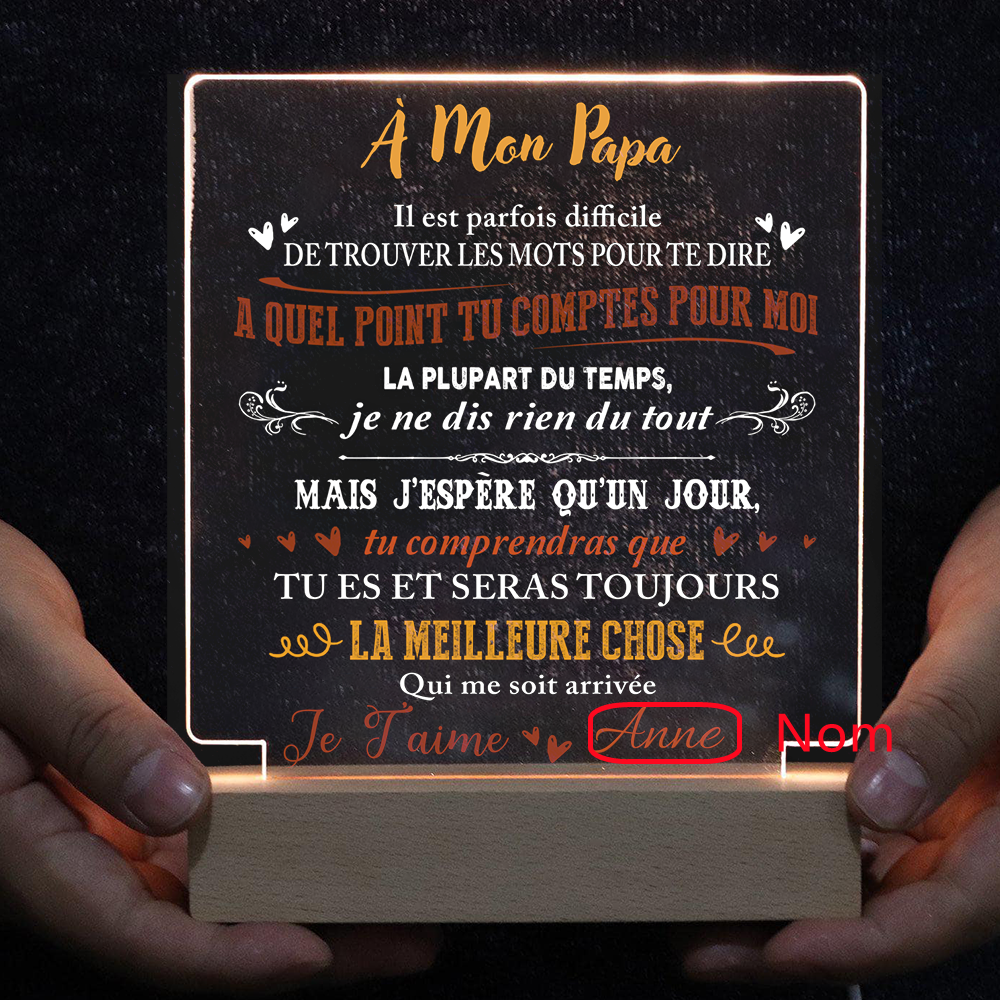 À Mon Papa
Il est parfois difficile
DE TROUVER LES MOTS POUR TE DIRE
A QUEL POINT TU COMPTES POUR MOI
LA PLUPART DU TEMPS,
je ne dis rien du tout
MAIS J'ESPÈRE QU'UN JOUR,
tu comprendras que
TU ES ET SERAS TOUJOURS
LA MEILLEURE CHOSE
Qui me soit arrivée
Je T'aime Anne Nom